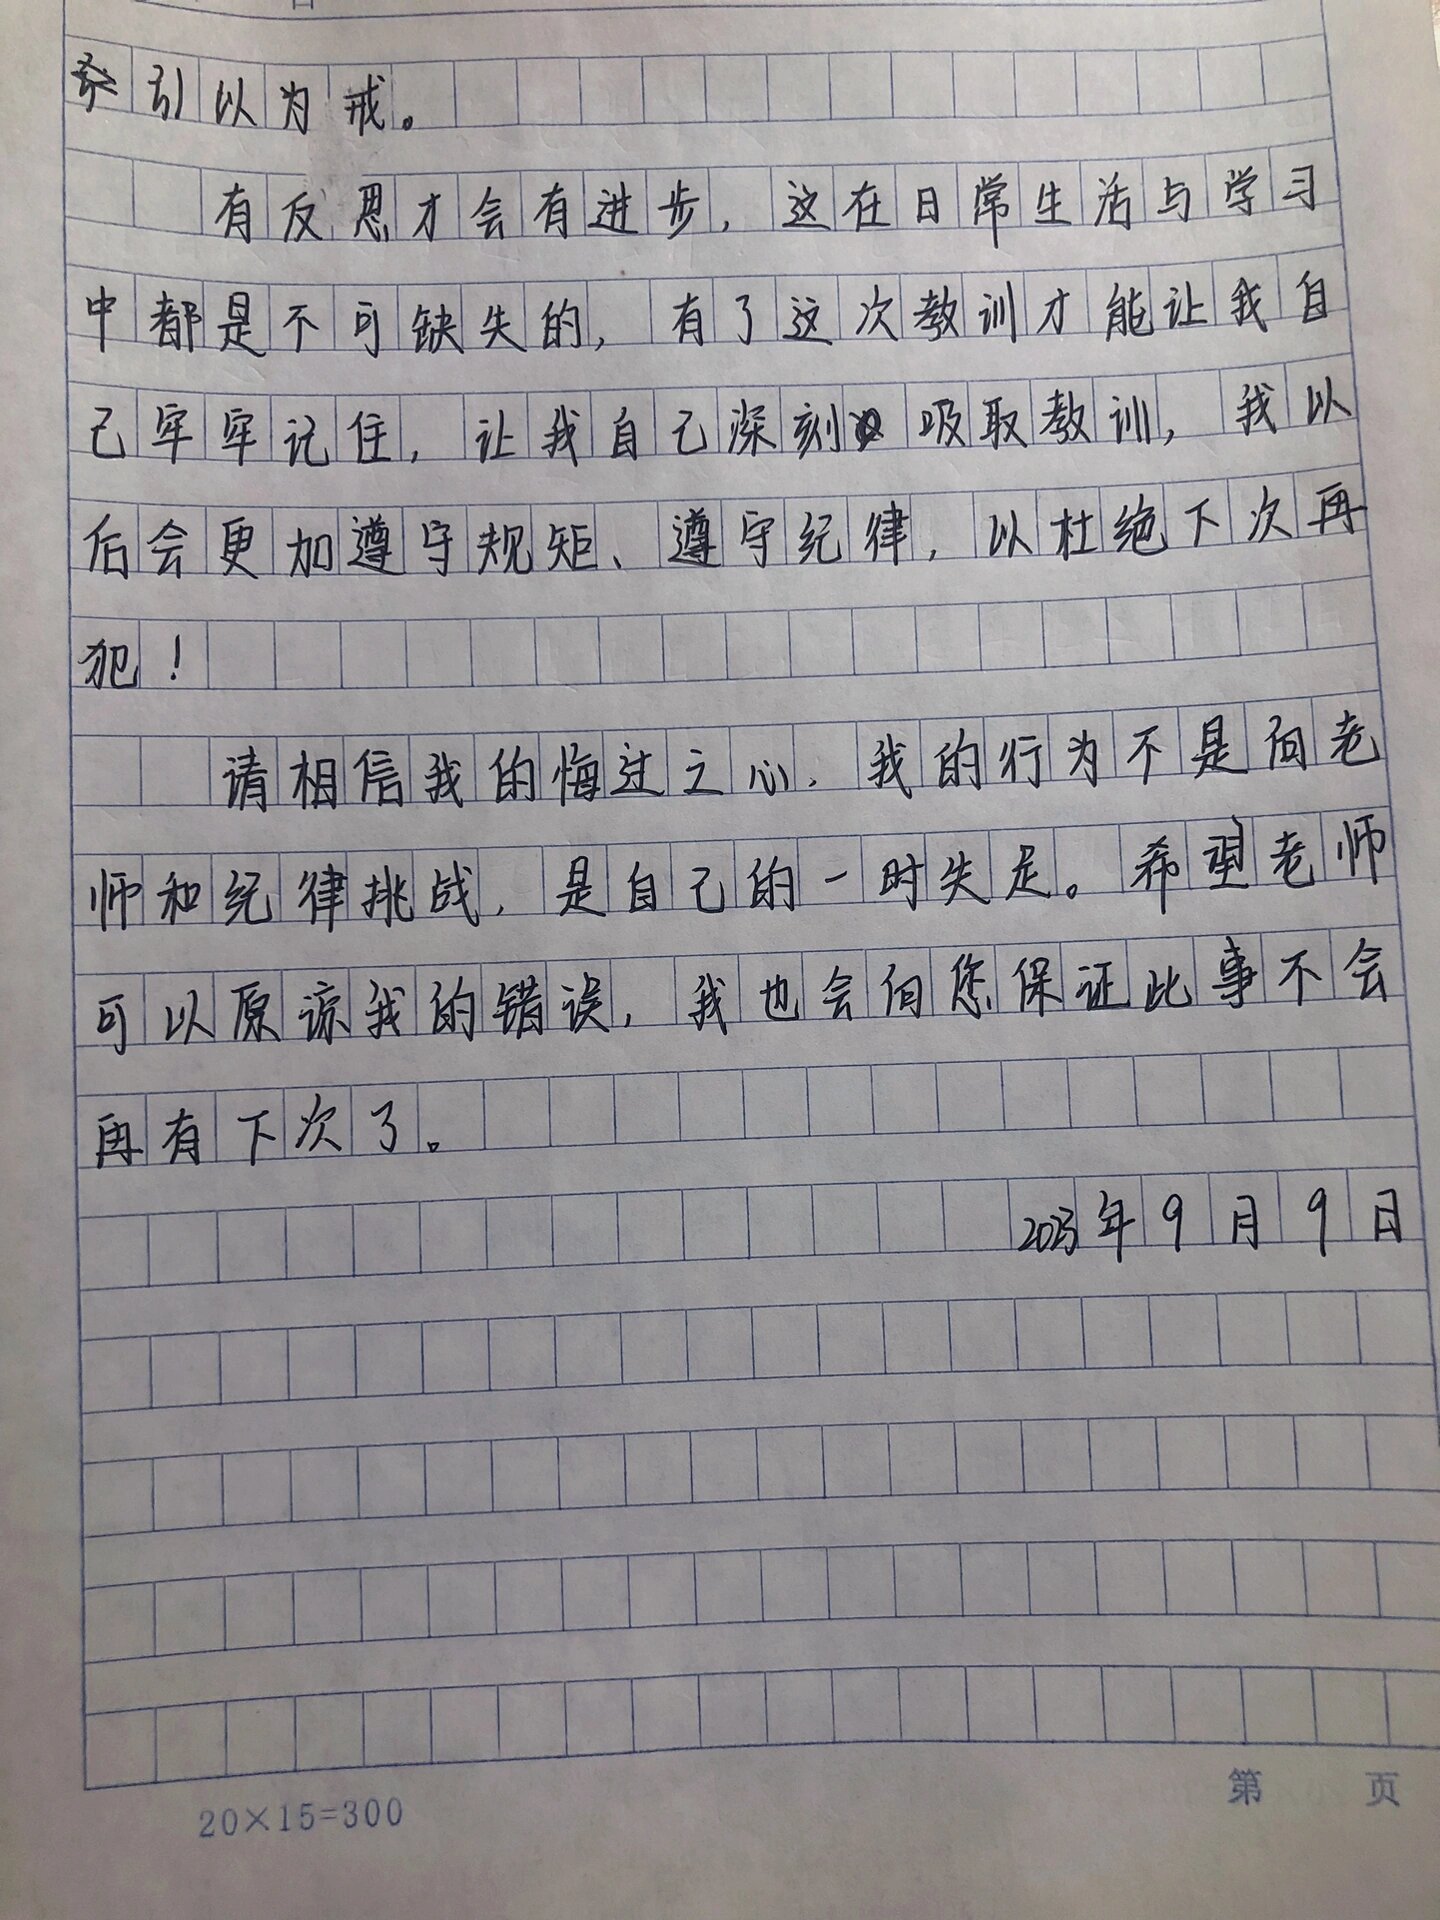 引以为戒。
有反思才会有进步，这在日常生活与学习
中都是不可缺失的，有了这次教训才能让我自
己牢牢记住，让我自己深刻吸取教训，我以
后会更加遵守规矩、遵守纪律，以杜绝下次再
犯！
请相信我的悔过之心，我的行为不是向老
师和纪律挑战，是自己的一时失足。希望老师
可以原谅我的错误，我也会向您保证此事不会
再有下次了。
2023年9月9日
20×15=300
第 页